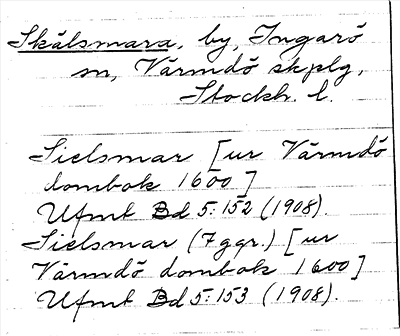 Skälsmara, by, Ingarö
sn, Värmdö skplg,
Stockh. l.
Sielsmar [ur Värmdö
dombok 1600]
Ufmt Bd 5:152 (1908).
Sielsmar (7 ggr.) [ur
Värmdö dombok 1600]
Ufmt Bd 5:153 (1908).